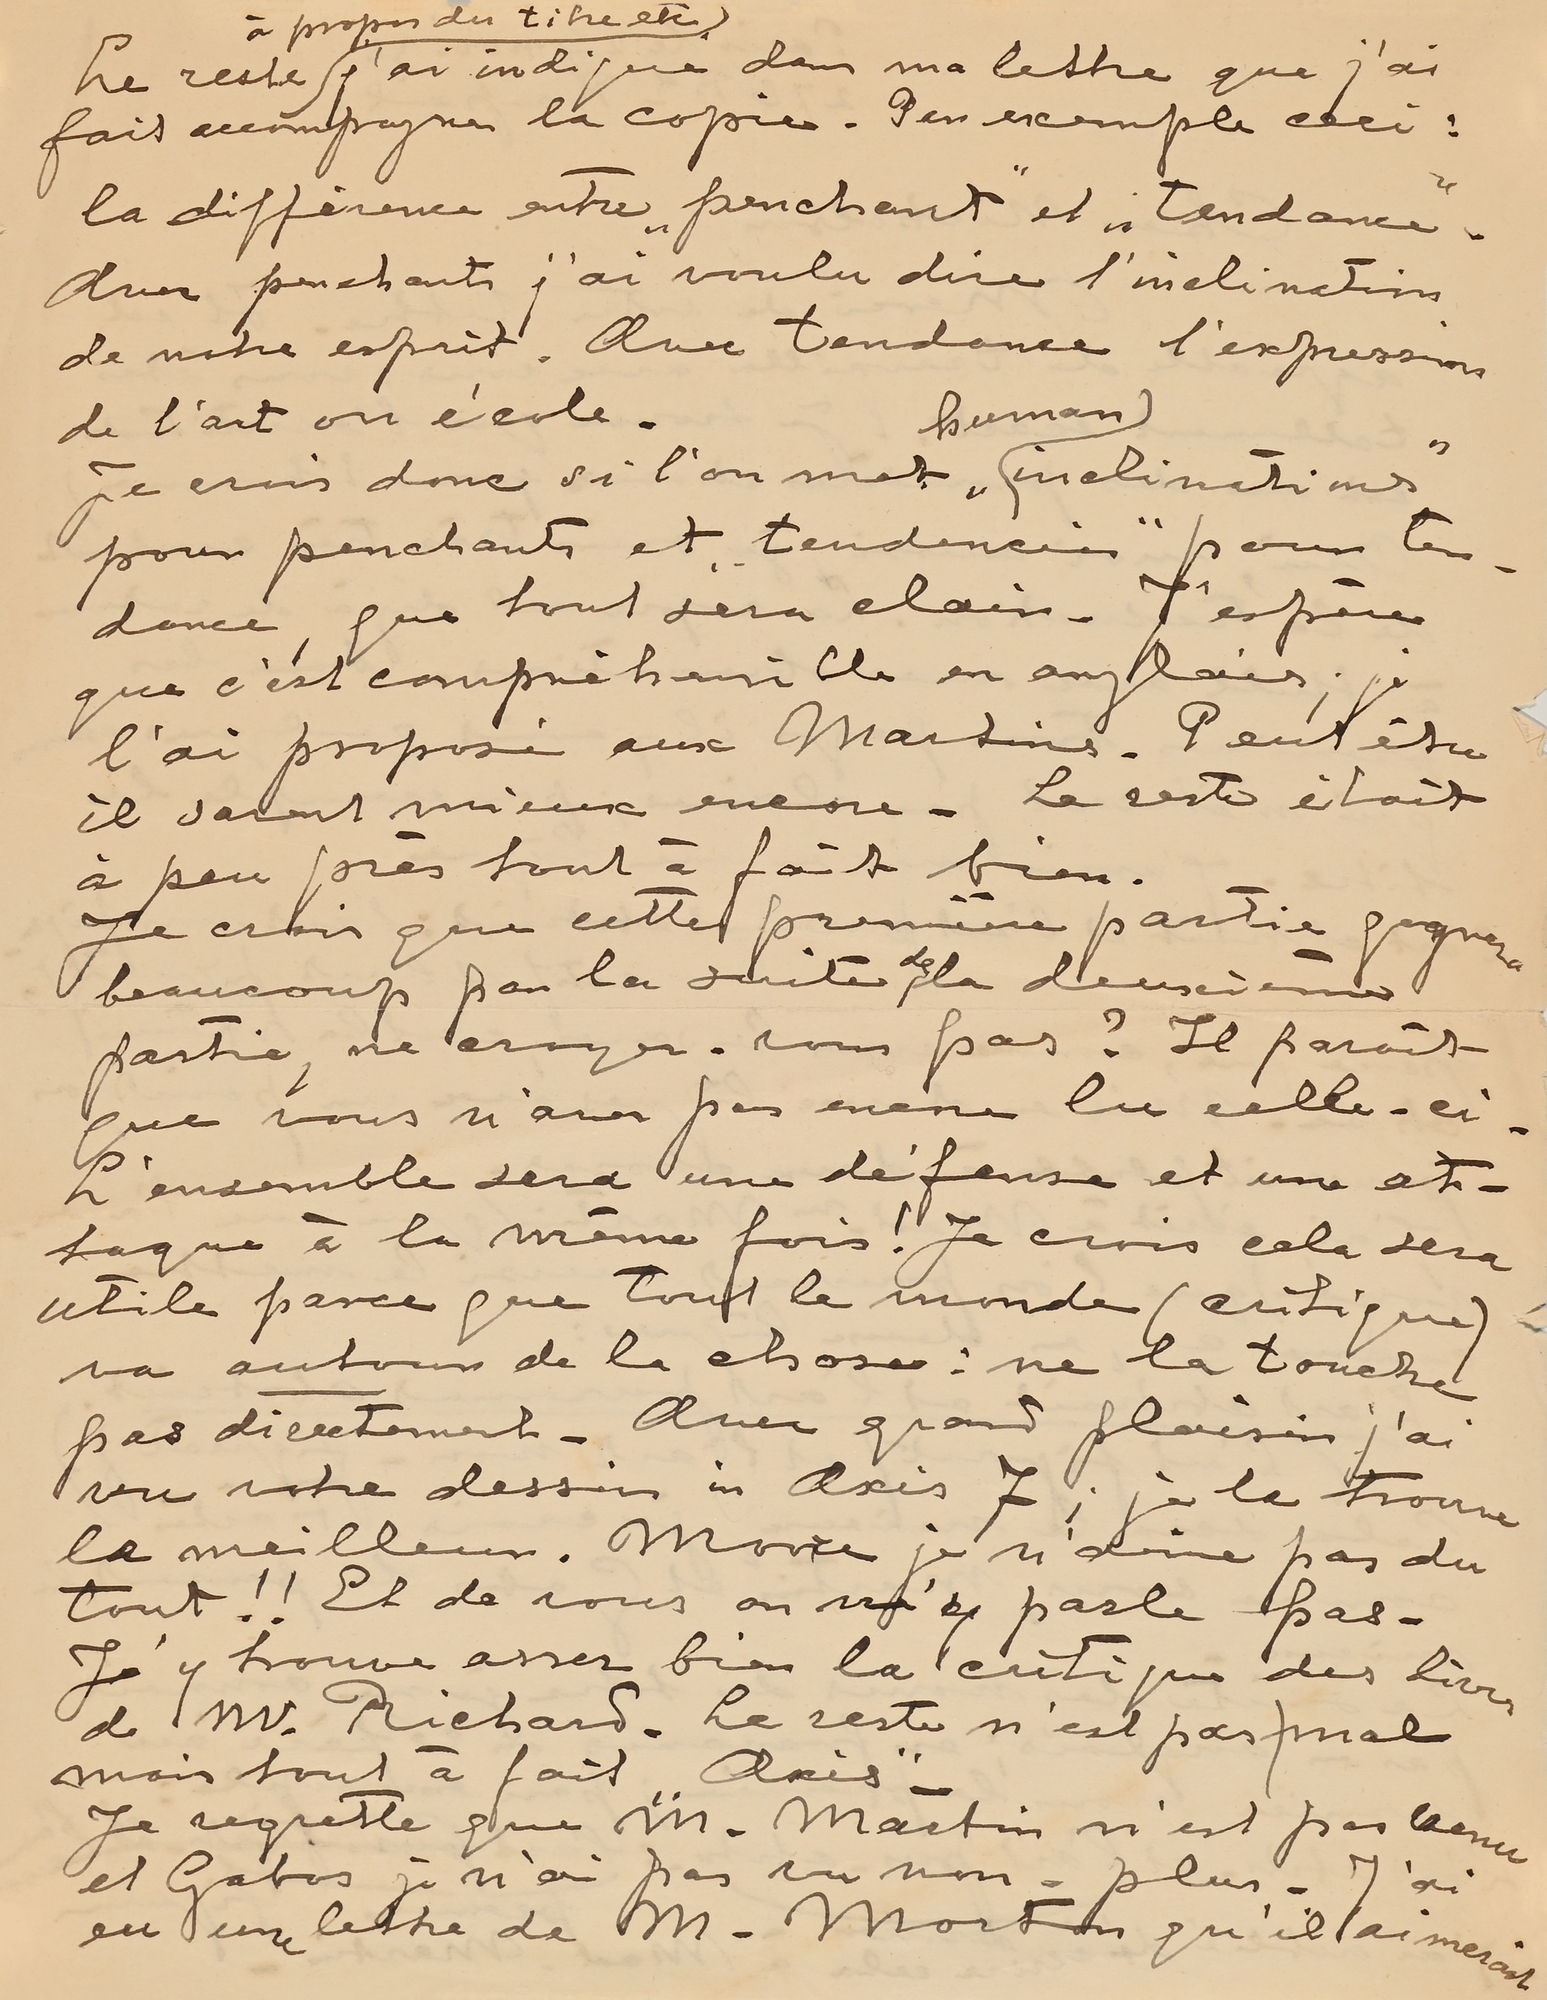 à propos du titre etc)
Le reste (j'ai indiqué dans ma lettre que j'ai
fait accompagner la copie. Par exemple ceci :
la différence entre „penchant" et „tendance".
Avec penchants j'ai voulu dire l'inclination
de notre esprit. Avec tendance l'expression
de l'art ou école.
human)
Je crois donc si l'on met „(inclinations"
pour penchants et „tendencies" pour ten-
dance, que tout sera clair. J'espère
que c'est compréhensible en anglais; je
l'ai proposé aux Martins. Peut être
il savent mieux encore. Le reste était
à peu près tout à fait bien.
Je crois que cette première partie gagnera
beaucoup par la suite de la deuxième
partie, ne croyez-vous pas? Il paraît
que vous n'avez pas encore lu celle-ci.
L'ensemble sera une défense et une at-
taque à la même fois! Je crois cela sera
utile parce que tout le monde (critique)
va autour de la chose: ne la touche
pas directement. Avec grand plaisir j'ai
vu votre dessin in Axis 7; je la trouve
la meilleur. Moore je n'aime pas du
tout!! Et de vous on n'y parle pas.
Je y trouve assez bien la critique des livres
de M. Richard. Le reste n'est pas mal
mais tout à fait „Axis".
Je regrette que M. Martin n'est pas venu
et Gabos je n'ai pas vu non-plus. J'ai
eu une lettre de M. Morton qu'il aimerait